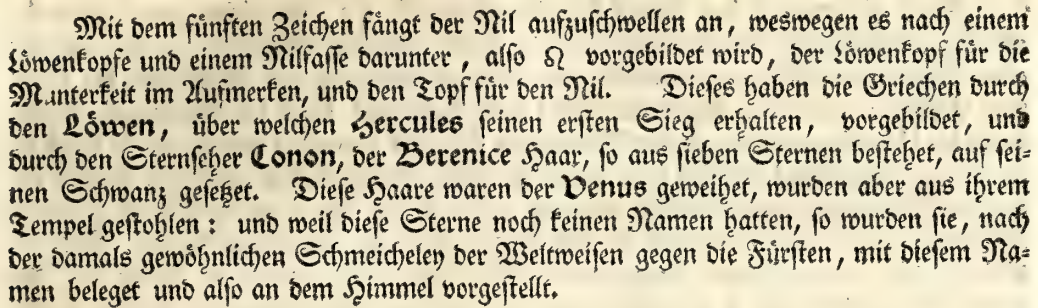 Mit dem fünften Zeichen fängt der Nil aufzuschwellen an, weswegen es nach einem
Löwenkopfe und einem Nilfasse darunter, also ♌ vorgebildet wird, der Löwenkopf für die
Munterkeit im Aufmerken, und den Topf für den Nil. Dieses haben die Griechen durch
den Löwen, über welchen Hercules seinen ersten Sieg erhalten, vorgebildet, und
durch den Sternseher Conon, der Berenice Haar, so aus sieben Sternen bestehet, auf sei-
nen Schwanz gesetzet. Diese Haare waren der Venus geweihet, wurden aber aus ihrem
Tempel gestohlen: und weil diese Sterne noch keinen Namen hatten, so wurden sie, nach
der damals gewöhnlichen Schmeicheley der Weltweisen gegen die Fürsten, mit diesem Na-
men beleget und also an dem Himmel vorgestellt.